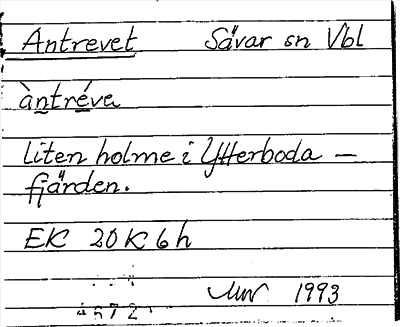 Antrevet Sävar sn Vbl
àntréva
liten holme i Ytterboda-
fjärden.
EK 20K6h
1993
4572